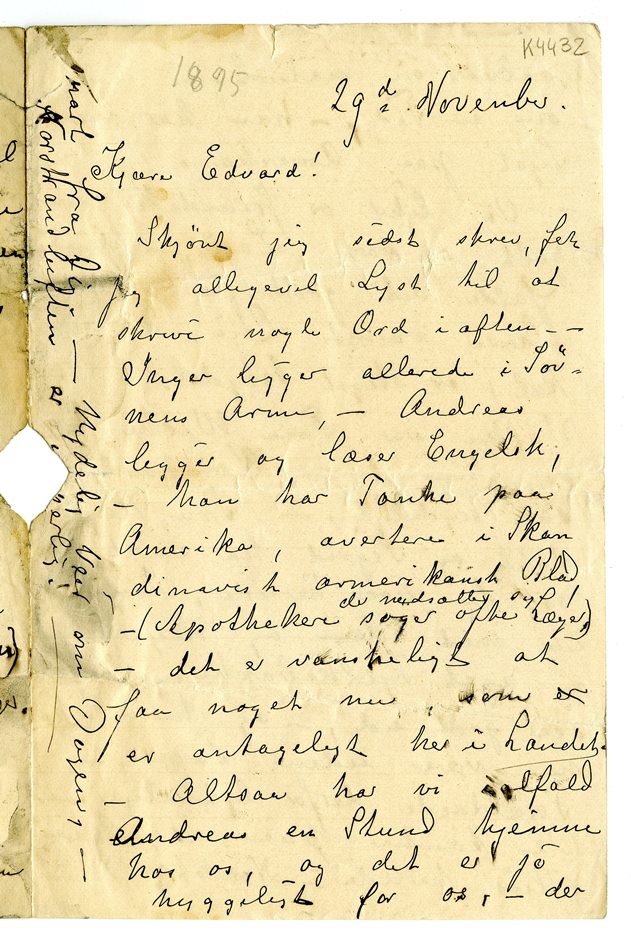 K4432
1895
29d November.
Kjære Edvard!
Skjønt jeg sidst skrev, fek
jeg allegevel Lyst til at
skrive nogle Ord i aften - -
Inger ligger allerede i Søv-
nens Arme, - Andreas
ligger og læser Engelsk,
- han har Tanke paa
Amerika, avertere i Skan
dinavisk amerikansk Blad
de nedsætter sig!
-(Apothekere søger ofte Læger)
- det er vanskeligt at
faa noget nu, som er
er antageligt her i Landet.
- Altsaa har vi alfald
Andreas en Stund hjemme
hos os, og det er jo
hyggeligt for os, - der
snart fra Dig - Nydelig Veir om Dagen, -
Norstrandluften er